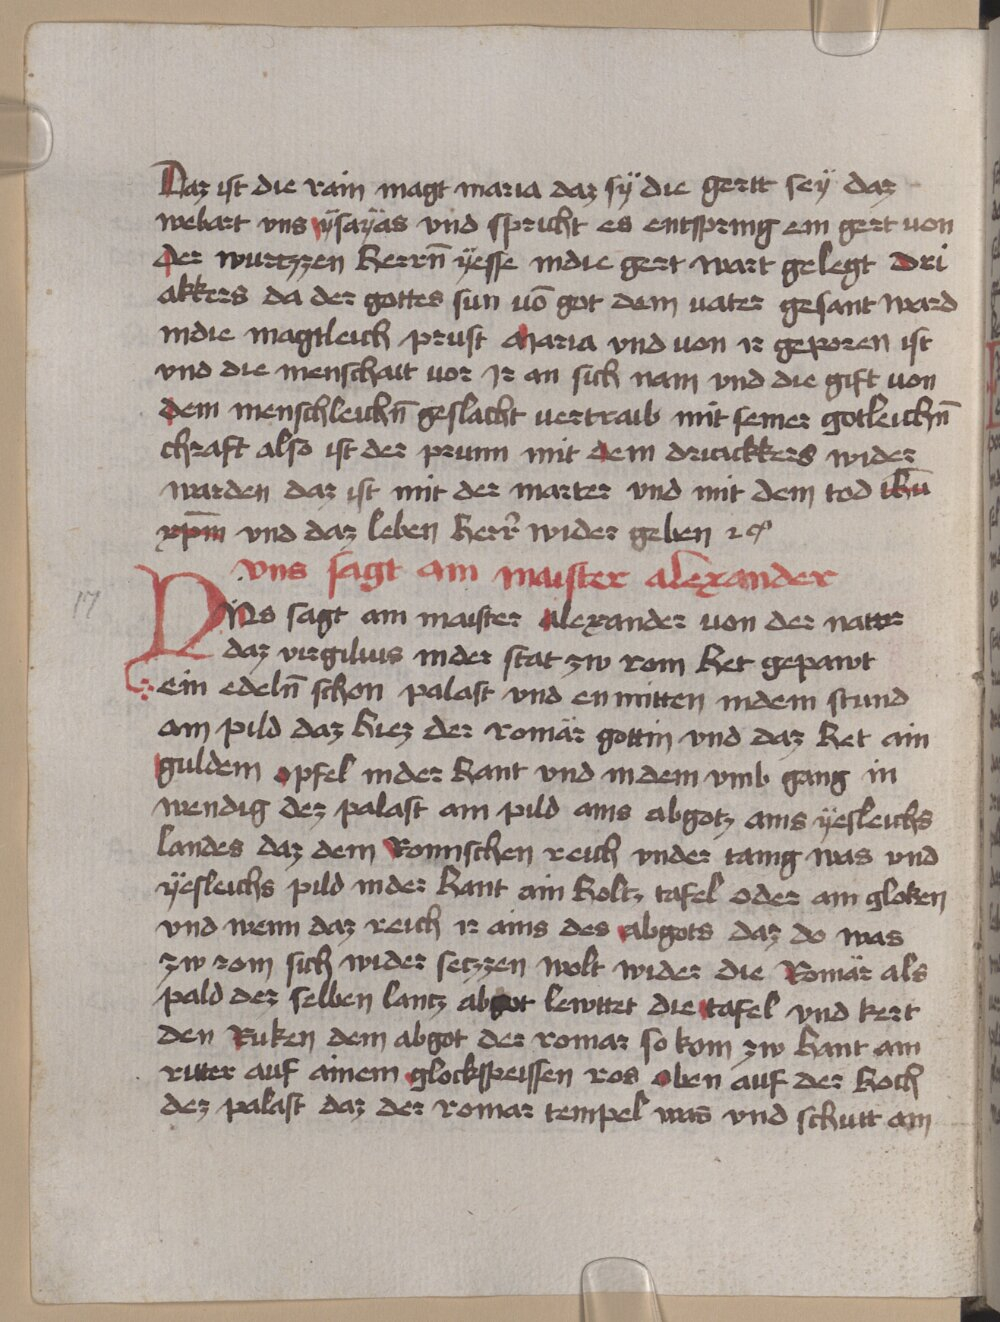 Daz ist die rain magt maria daz sÿ die gertt seÿ daz
webart vns ÿsaÿas vnd spricht es entspring ein gert von
der wurtzzen herrn̄ ÿesse indie gert wart gelegt dri
akkers da der gottes sun vō got dem vater gesant ward
indie magtleich prust Maria vnd von ir geporen ist
vnd die menschait vor Ir an sich nam vnd die gift von
dem menschleichn̄ geslacht vertraib mit seiner gotleichn̄
chraft also ist der prunn mit dem driackkers wider
warden daz ist mit der marter vnd mit dem tod ihū
xpm̄ vnd daz leben herr̄ wider geben
vns sagt ain maister alexander
17
VNs sagt ain maister Alexander von der natur
daz virgilius inder stat zw rom het gepawt
ein edeln̄ schon palast vnd en mitten indem stund
ain pild daz hiez der romär gottin vnd daz het ain
guldem opfel inder hant vnd indem vmb gang in
wendig dez palast ain pild ains abgotz ains ÿesleichs
landes daz dem Romischen reich vnder tanig was vnd
ÿesleichs pild inder hant ain holtz tafel oder ain gloken
vnd wenn daz reich ir ains des abgots daz do was
zw rom sich wider setzzen wolt wider die Romär als
pald dez selben lantz abgot lewttet die tafel vnd kert
den Ruken dem abgot der romar so kom zw hant ain
ritter auf ainem glockspeissen ros oben auf der hoch
dez palast daz der romar tempel was vnd schutt ain